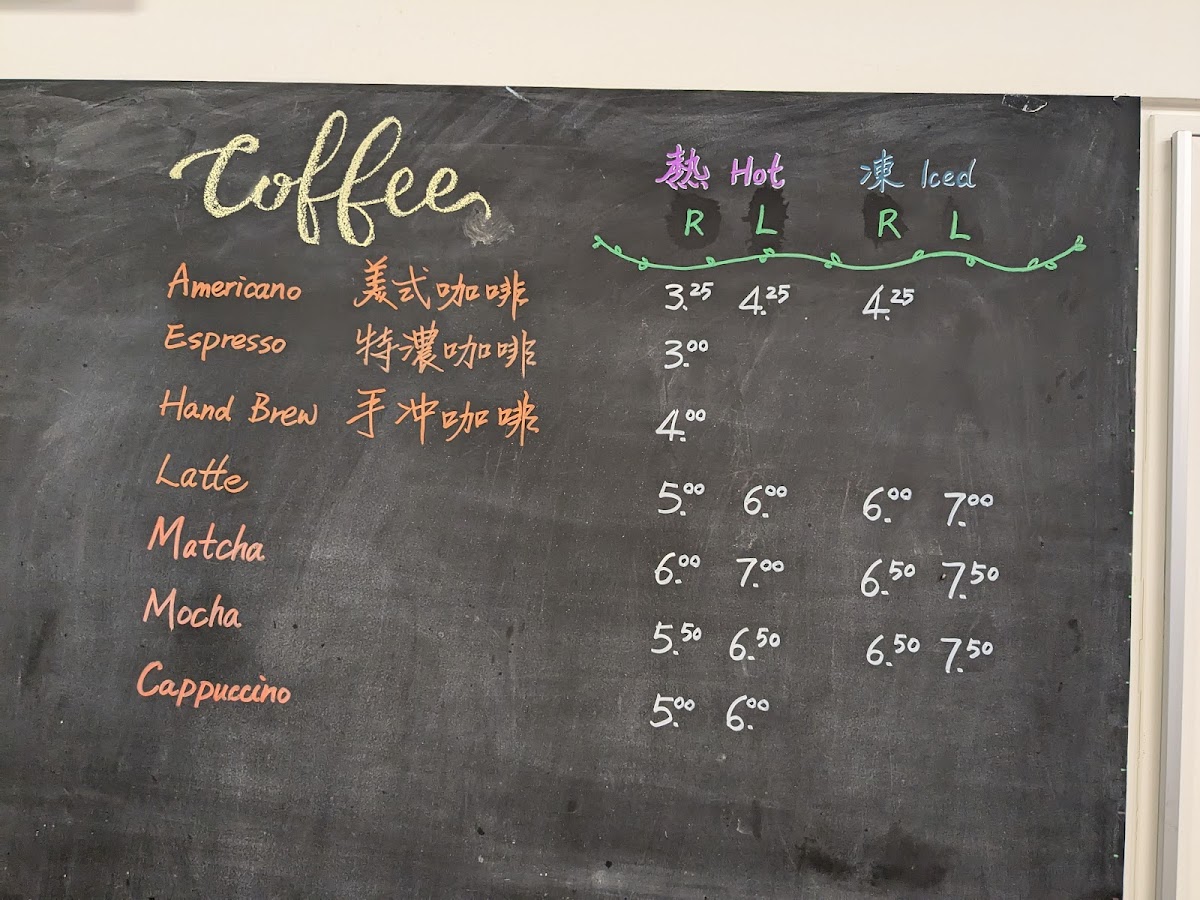 Coffee 熱 Hot 凍 Iced
R L R L
Americano 美式咖啡 3.25 4.25 4.25
Espresso 特濃咖啡 3.00
Hand Brew 手冲咖啡 4.00
Latte 5.00 6.00 6.00 7.00
Matcha 6.00 7.00 6.50 7.50
Mocha 5.50 6.50 6.50 7.50
Cappuccino 5.00 6.00